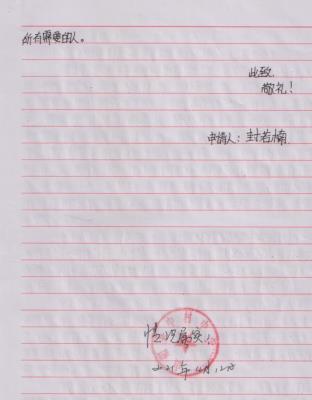 所有需要的人。
此致
敬礼！
申请人：封若楠
情况属实。
2021年4月12日